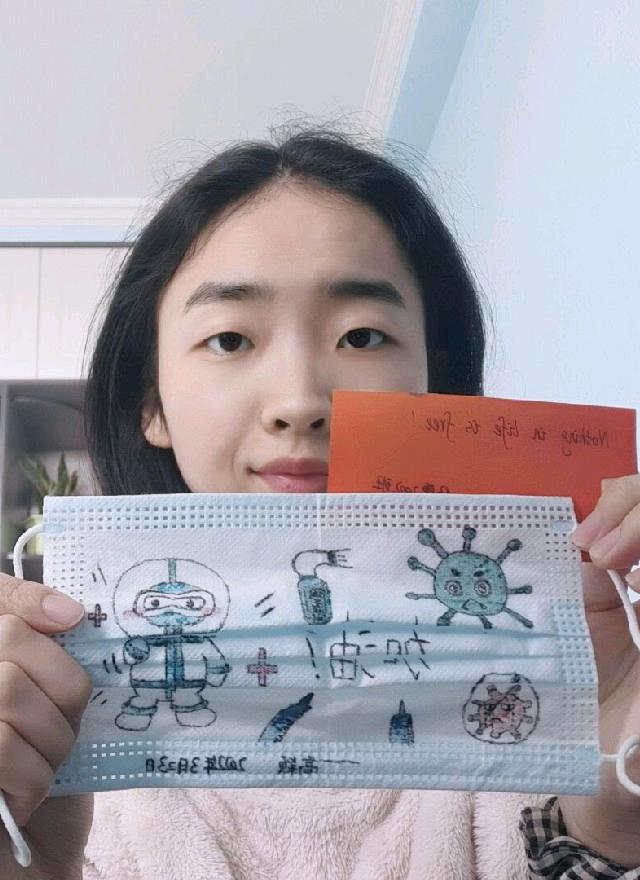 Nothing in life is free!
加油!
——高颖 2022年3月23日